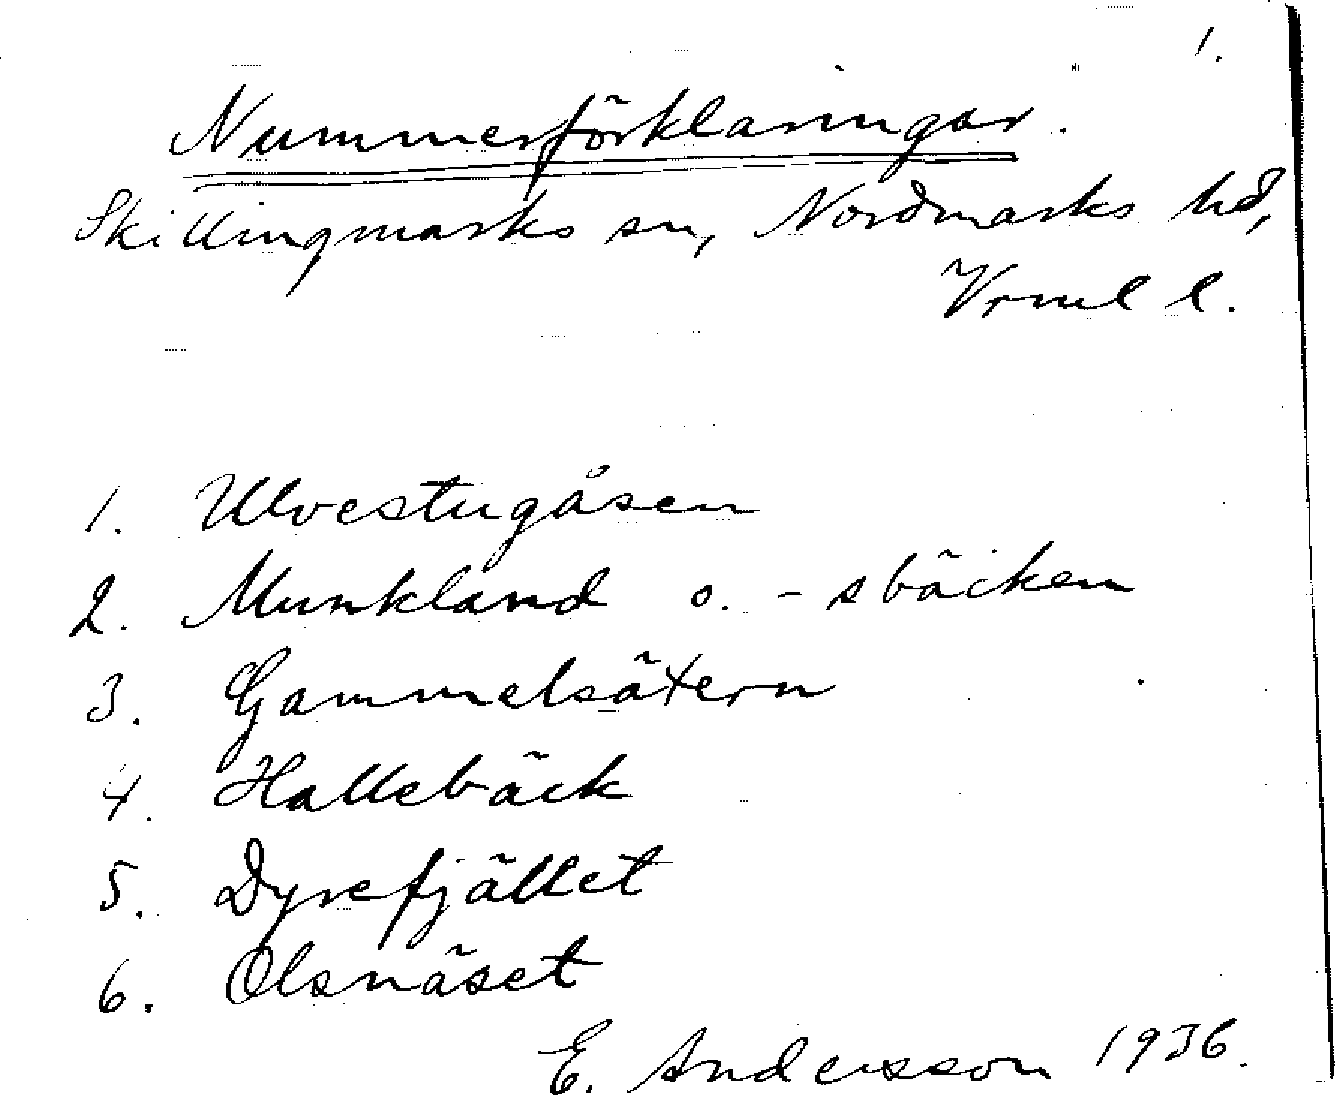 1.
Nummerförklaringar.
Skillingmarks sn, Nordmarks hd,
Vrml l.
1. Ulvestugåsen
2. Munkland o. - sbäcken
3. Gammelsätern
4. Hallebäck
5. Dyrefjället
6. Olsnäset
E. Andersson 1936.